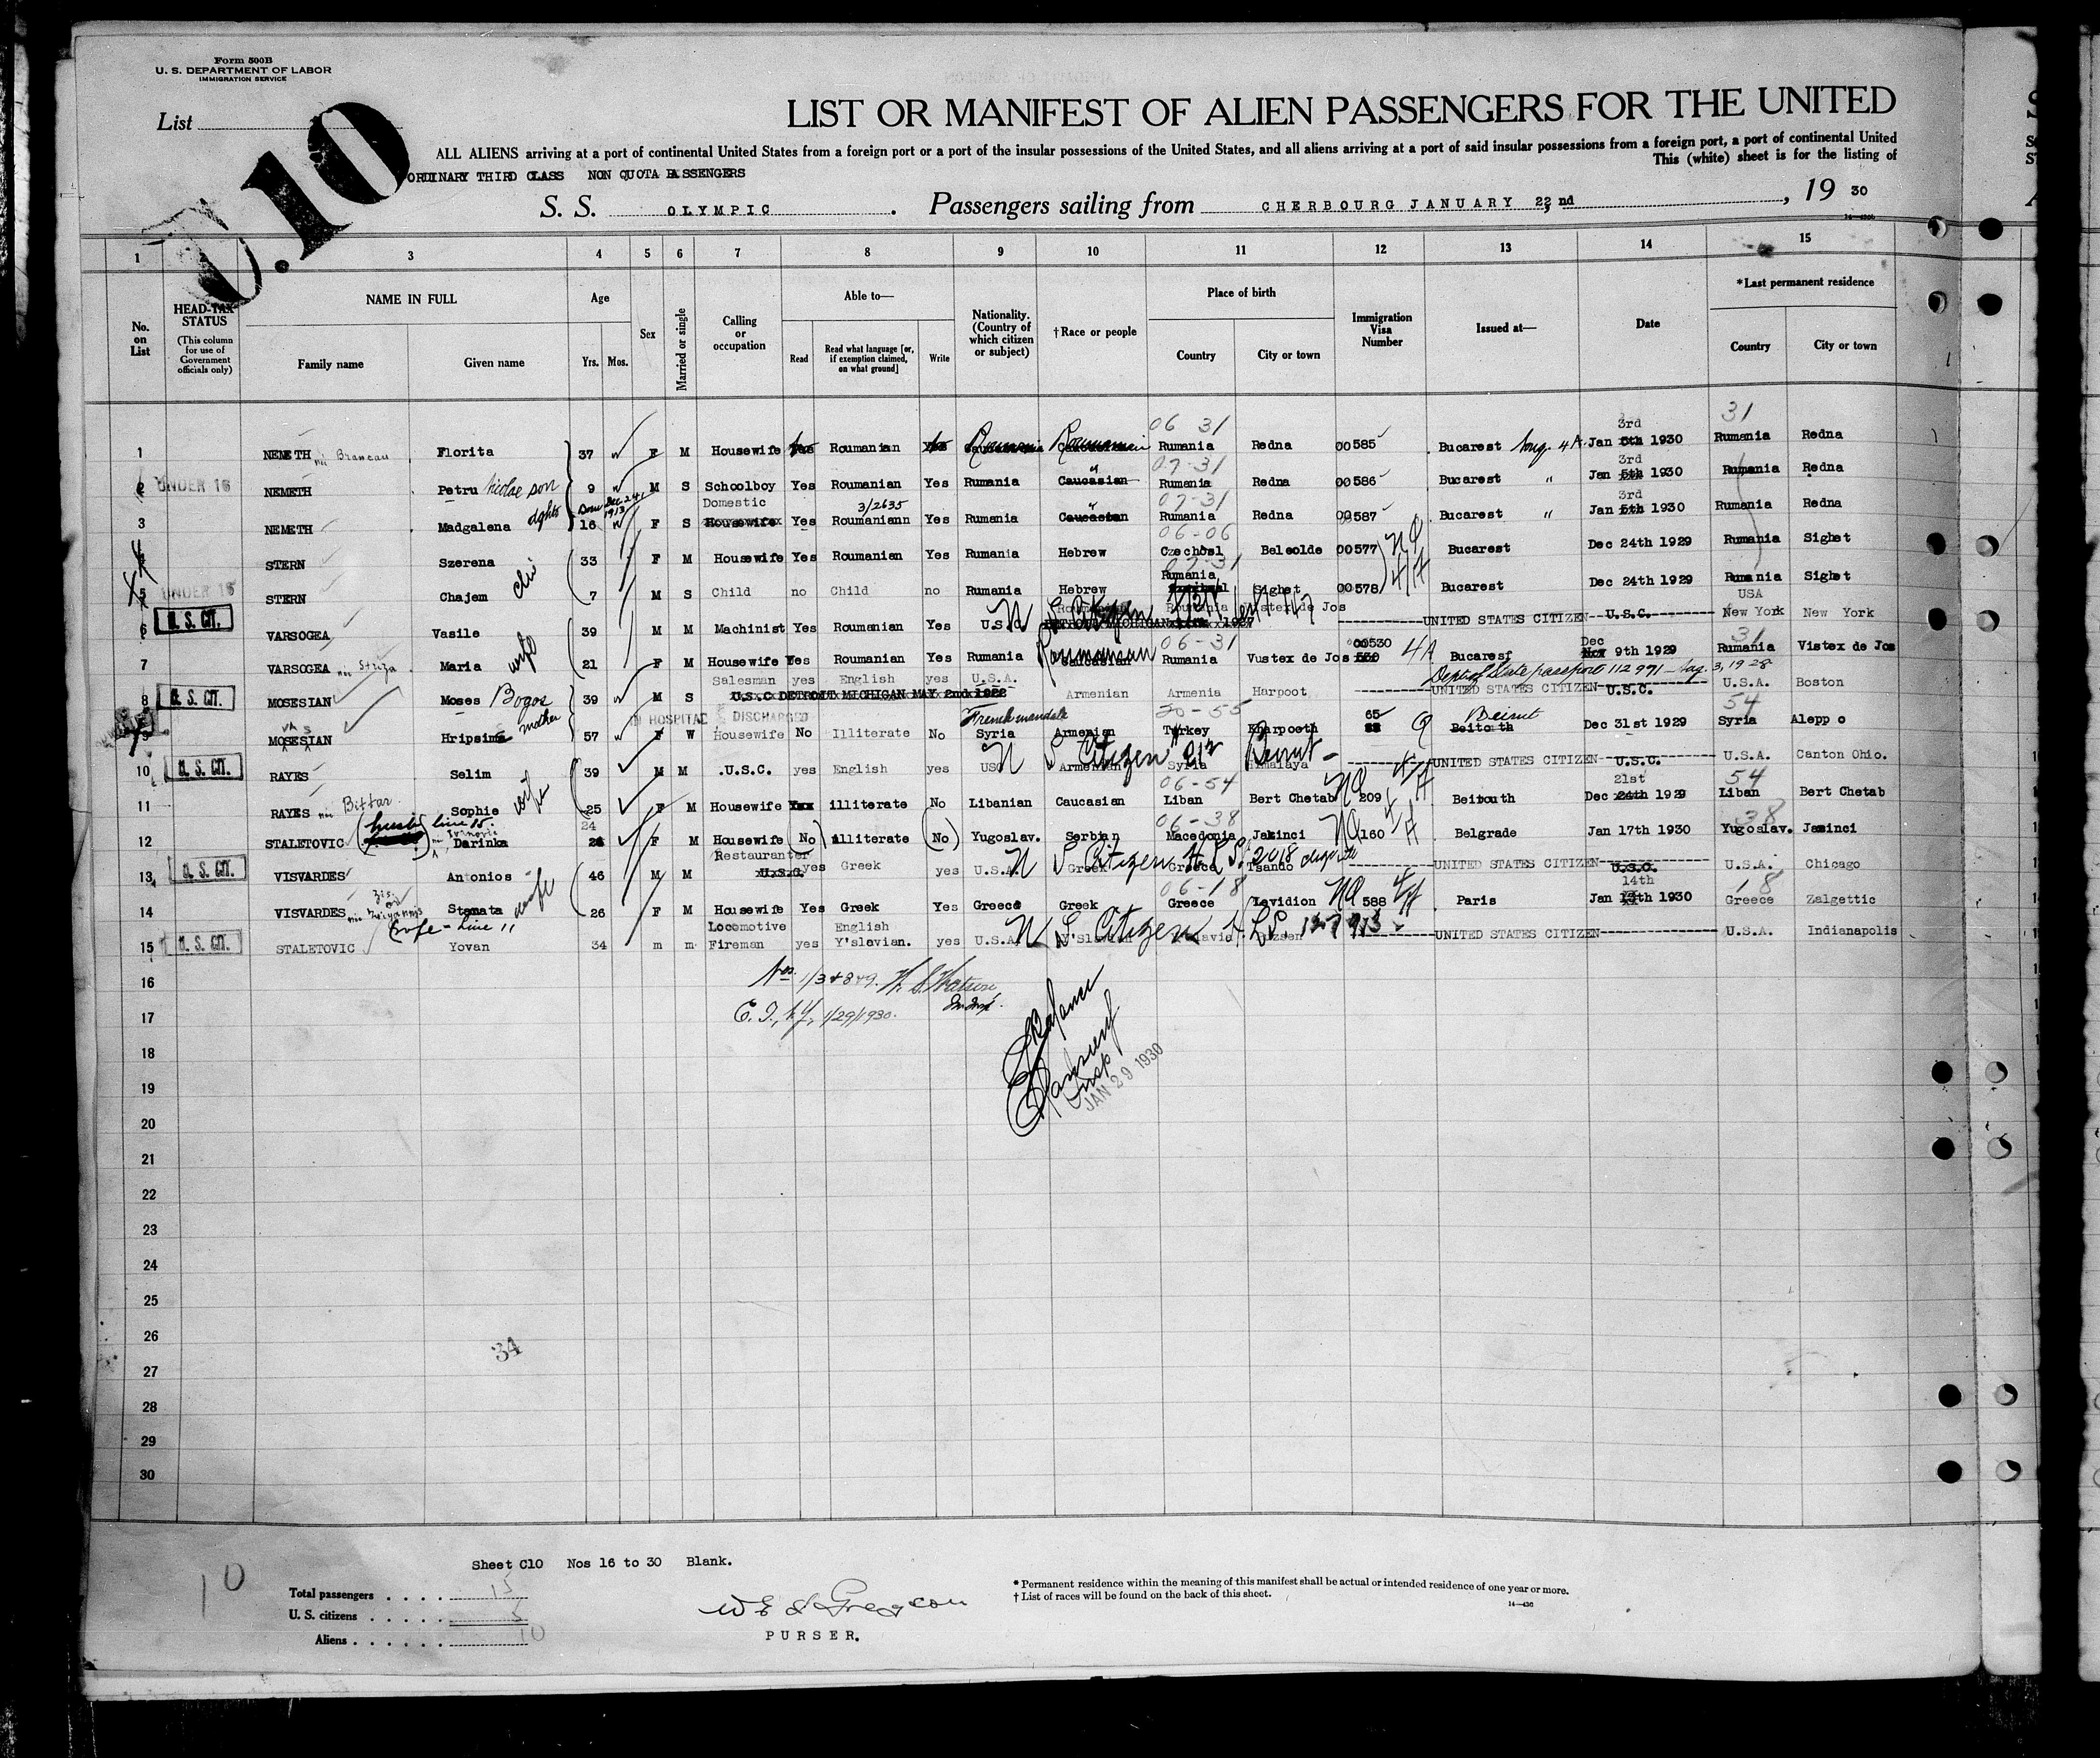 Form 500B
U. S. DEPARTMENT OF LABOR
IMMIGRATION SERVICE
List
C.10
LIST OR MANIFEST OF ALIEN PASSENGERS FOR THE UNITED
ALL ALIENS arriving at a port of continental United States from a foreign port or a port of the insular possessions of the United States, and all aliens arriving at a port of said insular possessions from a foreign port, a port of continental United
This (white) sheet is for the listing of
ORDINARY THIRD CLASS NON QUOTA PASSENGERS
S. S. OLYMPIC. Passengers sailing from CHERBOURG JANUARY 22nd, 19 30
1 2 3 4 5 6 7 8 9 10 11 12 13 14 15
No. on List
HEAD-TAX STATUS (This column for use of Government officials only)
NAME IN FULL Family name Given name
Age Yrs. Mos.
Sex
Married or single
Calling or occupation
Able to— Read Read what language [or, if exemption claimed, on what ground] Write
Nationality. (Country of which citizen or subject)
†Race or people
Place of birth Country City or town
Immigration Visa Number
Issued at—
Date
*Last permanent residence Country City or town
06 31 3rd 31
1 NEMETH née Brancau Florita 37 F M Housewife Yes Roumanian Yes Roumania Roumanian Rumania Redna 00585 Bucarest Hung. 4A Jan 5th 1930 Rumania Redna
07-31 3rd
2 UNDER 16 NEMETH Petru Nicolae son 9 M S Schoolboy Yes Roumanian Yes Rumania " Caucasian Rumania Redna 00586 Bucarest " Jan 5th 1930 Rumania Redna
Born Dec. 24, 1913 Domestic 3/2635 07-31 3rd
3 NEMETH Madgalena dght 16 F S Housewife Yes Roumaniann Yes Rumania " Caucasian Rumania Redna 00587 Bucarest " Jan 5th 1930 Rumania Redna
06-06
4 STERN Szerena 33 F M Housewife Yes Roumanian Yes Rumania Hebrew Czechosl Beleolde 00577 NQ 4A Bucarest Dec 24th 1929 Rumania Sighet
07-31 Rumania
5 UNDER 16 STERN Chajem 7 M S Child no Child no Rumania Hebrew Sighet 00578 Bucarest Dec 24th 1929 Rumania Sighet
USA
6 U. S. CIT. VARSOGEA Vasile 39 M M Machinist Yes Roumanian Yes U.S.C. Roumania Vistex de Jos UNITED STATES CITIZEN U.S.C. New York New York
06-31 00530 Dec 31
7 VARSOGEA née Maria wife 21 F M Housewife Yes Roumanian Yes Rumania Roumanian Caucasian Rumania Vustex de Jos 530 4A Bucarest Nov 9th 1929 Rumania Vistex de Jos
Salesman yes English yes U.S.A. Dept of State passport 112991 - Aug. 3, 1928
8 U. S. CIT. MOSESIAN Moses Bogos 39 M S U.S.C DETROIT MICHIGAN MAY 2nd 1922 Armenian Armenia Harpoot UNITED STATES CITIZEN U.S.C. U.S.A. Boston
IN HOSPITAL DISCHARGED French mandate 20-55 65 Beirut 54
9 MOSESIAN Hripsima mother 57 F W Housewife No Illiterate No Syria Armenian Turkey Kharpoeth Q Beitouth Dec 31st 1929 Syria Aleppo
10 U. S. CIT. RAYES Selim 39 M M .U.S.C. yes English yes USC N S Citizen Beirut Syria UNITED STATES CITIZEN U.S.C. U.S.A. Canton Ohio.
06-54 NQ 4A 21st 54
11 RAYES née Bittar Sophie wife 25 F M Housewife illiterate No Libanian Caucasian Liban Bert Chetab 209 Beitouth Dec 24th 1929 Liban Bert Chetab
line 15. 24 06-38 38
12 STALETOVIC Darinka F M Housewife (No) illiterate (No) Yugoslav. Serbian Macedonia Jakinci NQ 160 4A Belgrade Jan 17th 1930 Yugoslav. Jasinci
Restauranter
13 U. S. CIT. VISVARDES Antonios 46 M M U.S.C. yes Greek yes U.S.A. Greek N S Citizen Greece Tsando UNITED STATES CITIZEN U.S.C. U.S.A. Chicago
06-18 14th 18
14 VISVARDES née Stamata wife 26 F M Housewife Yes Greek Yes Greece Greek Greece Lavidion NQ 588 4A Paris Jan 13th 1930 Greece Zalgettic
Wife - Line 11 Locomotive English
15 U. S. CIT. STALETOVIC Yovan 34 m m Fireman yes Y'slavian. yes U.S.A. N S Citizen UNITED STATES CITIZEN U.S.A. Indianapolis
16
Nos. 1/3 & 8 & 9. W. S. Watson
17
E. I., N.Y., 1/29/1930.
18
19
JAN 29 1930
20
21
22
23
24
25
26
34
27
28
29
30
10
Sheet C10 Nos 16 to 30 Blank.
Total passengers 15
U. S. citizens 5
Aliens 10
PURSER.
* Permanent residence within the meaning of this manifest shall be actual or intended residence of one year or more.
† List of races will be found on the back of this sheet.
14—430